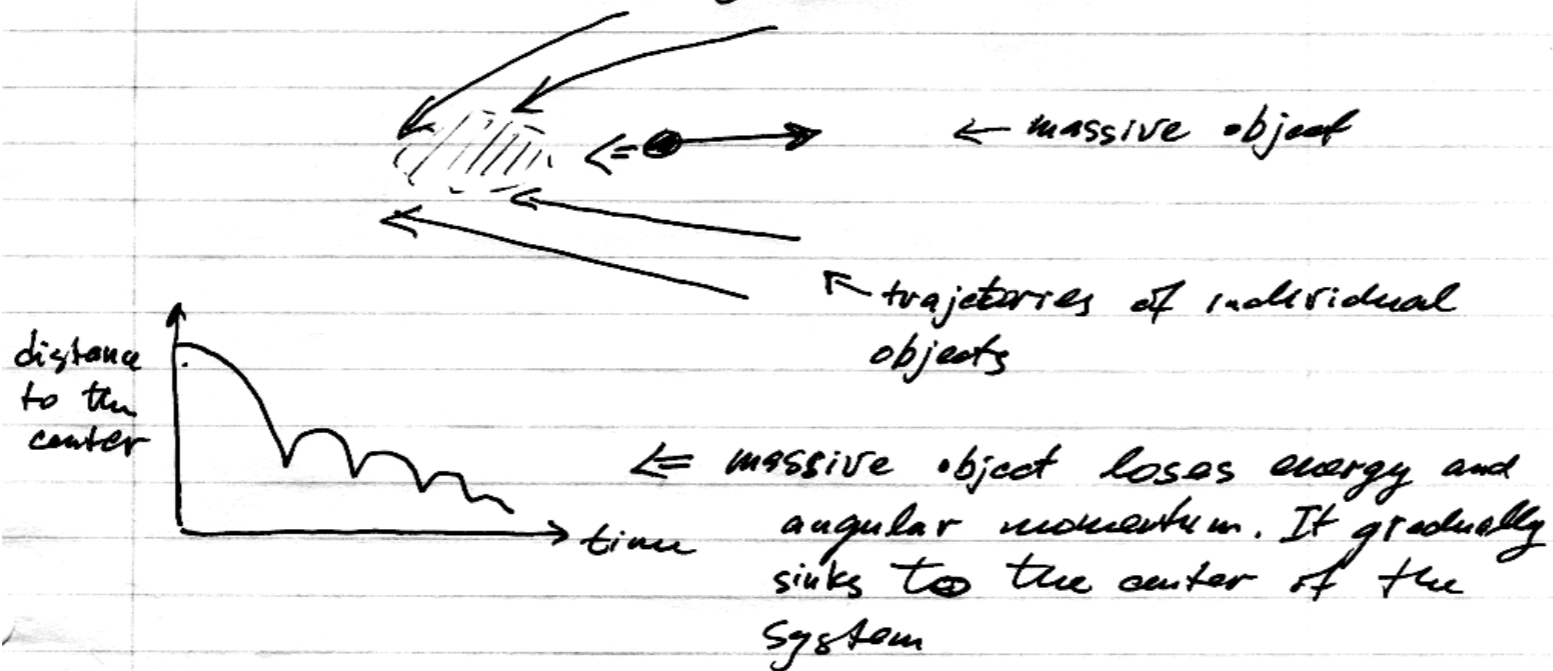 ← massive object
↖ trajectories of individual
objects
distance
to the
center
time
⇐ massive object loses energy and
angular momentum. It gradually
sinks to the center of the
System